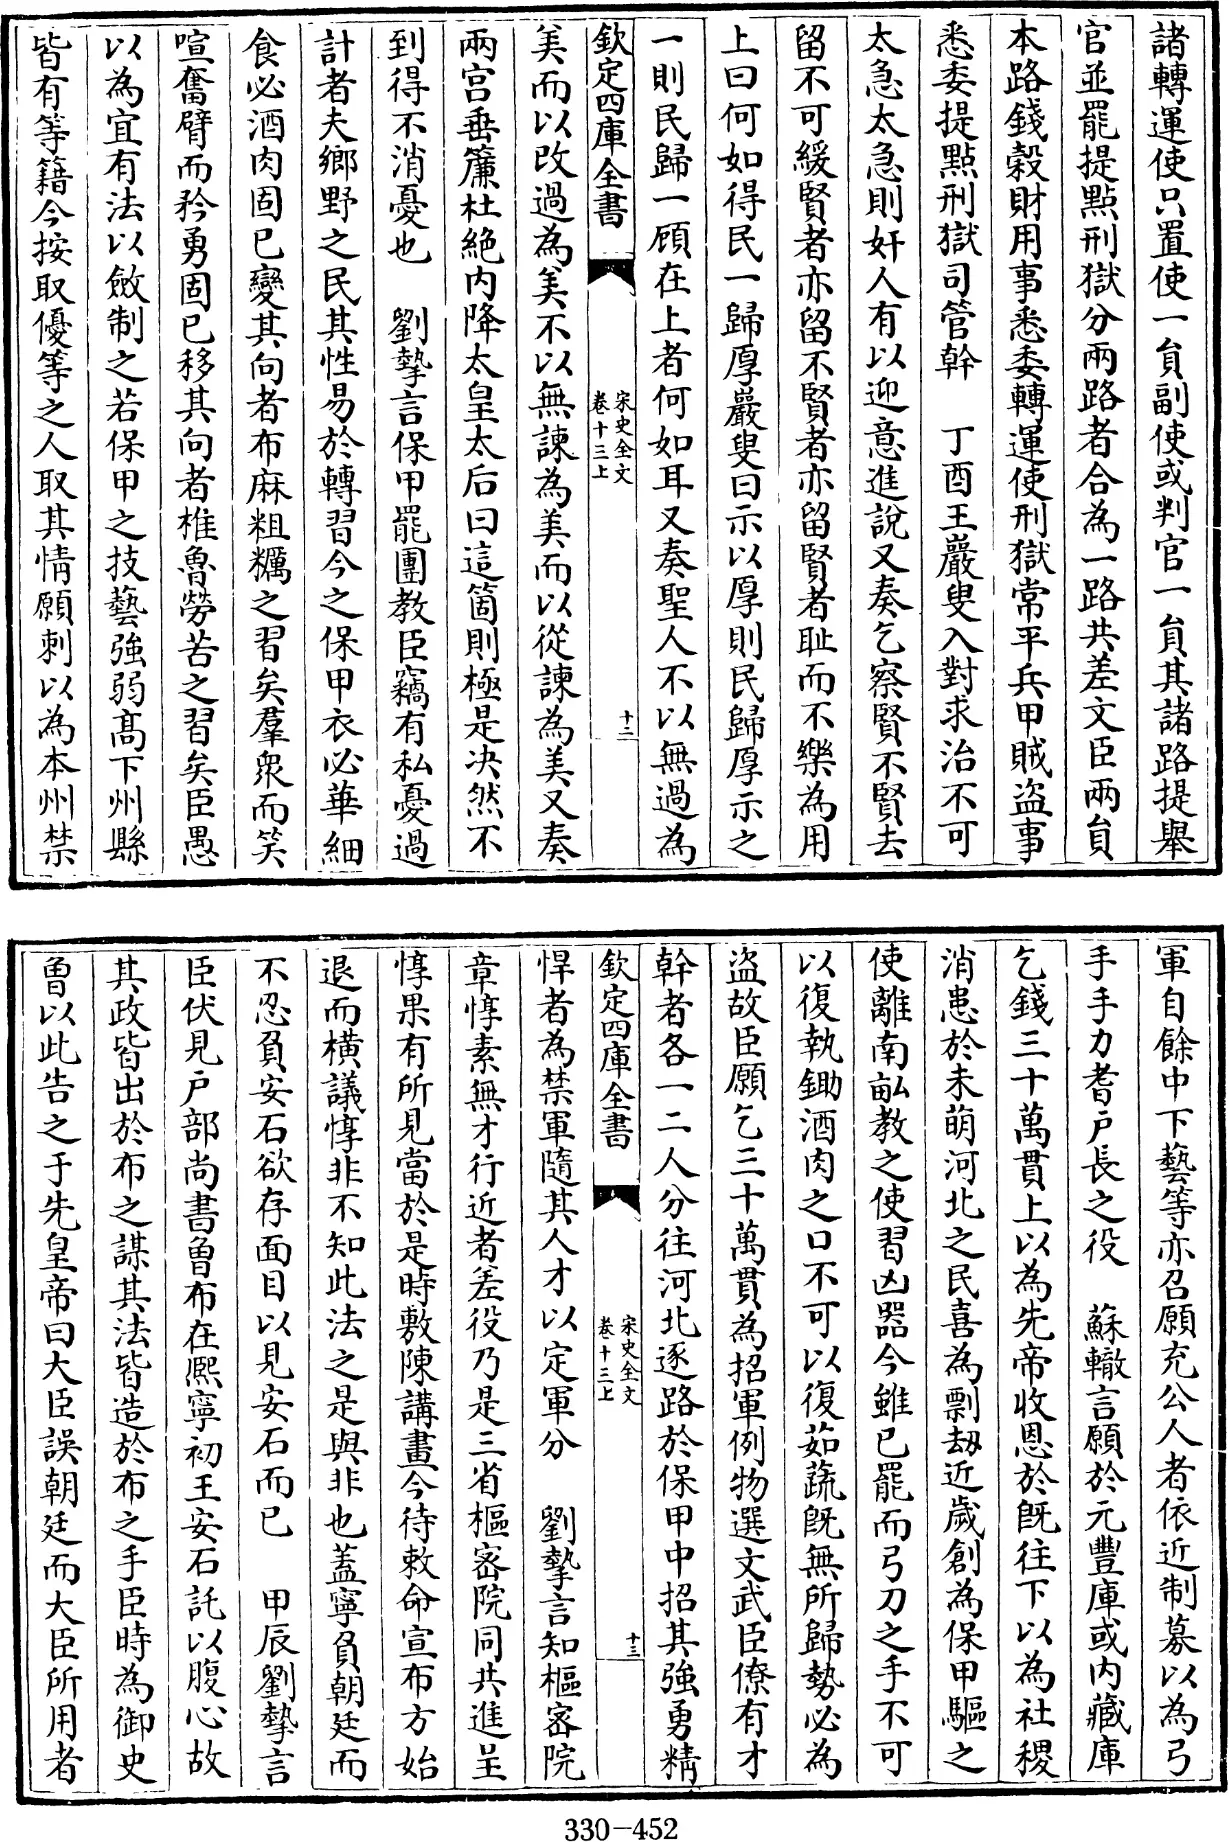 諸轉運使只置使一員副使或判官一員其諸路提舉
官並罷提點刑獄分兩路者合為一路共差文臣兩員
本路錢穀財用事悉委轉運使刑獄常平兵甲賊盜事
悉委提點刑獄司管幹　丁酉王巖叟入對求治不可
太急太急則奸人有以迎意進說又奏乞察賢不賢去
留不可緩賢者亦留不賢者亦留賢者恥而不樂為用
上曰何如得民一歸厚嚴叟曰示以厚則民歸厚示之
一則民歸一顧在上者何如耳又奏聖人不以無過為
欽定四庫全書
宋史全文
卷十三上
十二
美而以改過為美不以無諫為美而以從諫為美又奏
兩宮垂簾杜絕內降太皇太后曰這箇則極是決然不
到得不消憂也　劉摯言保甲罷團教臣竊有私憂過
計者夫鄉野之民其性易於轉習今之保甲衣必華細
食必酒肉固已變其向者布麻粗糲之習矣羣眾而笑
喧奮臂而矜勇固已移其向者椎魯勞苦之習矣臣愚
以為宜有法以斂制之若保甲之技藝強弱高下州縣
皆有等籍今按取優等之人取其情願刺以為本州禁
軍自餘中下藝等亦召願充公人者依近制募以為弓
手手力耆戶長之役　蘇轍言願於元豐庫或內藏庫
乞錢三十萬貫上以為先帝收恩於既往下以為社稷
消患於未萌河北之民喜為剽刼近歲創為保甲驅之
使離南畝教之使習凶器今雖已罷而弓刀之手不可
以復執鋤酒肉之口不可以復茹蔬既無所歸勢必為
盜故臣願乞三十萬貫為招軍例物選文武臣僚有才
幹者各一二人分往河北逐路於保甲中招其強勇精
欽定四庫全書
宋史全文
卷十三上
十三
悍者為禁軍隨其人才以定軍分　劉摯言知樞密院
章惇素無才行近者差役乃是三省樞密院同共進呈
惇果有所見當於是時敷陳講畫今待敕命宣布方始
退而橫議惇非不知此法之是與非也蓋寧負朝廷而
不忍負安石欲存面目以見安石而已　甲辰劉摯言
臣伏見戶部尚書曾布在熙寧初王安石託以腹心故
其政皆出於布之謀其法皆造於布之手臣時為御史
曾以此告之于先皇帝曰大臣誤朝廷而大臣所用者
330-452